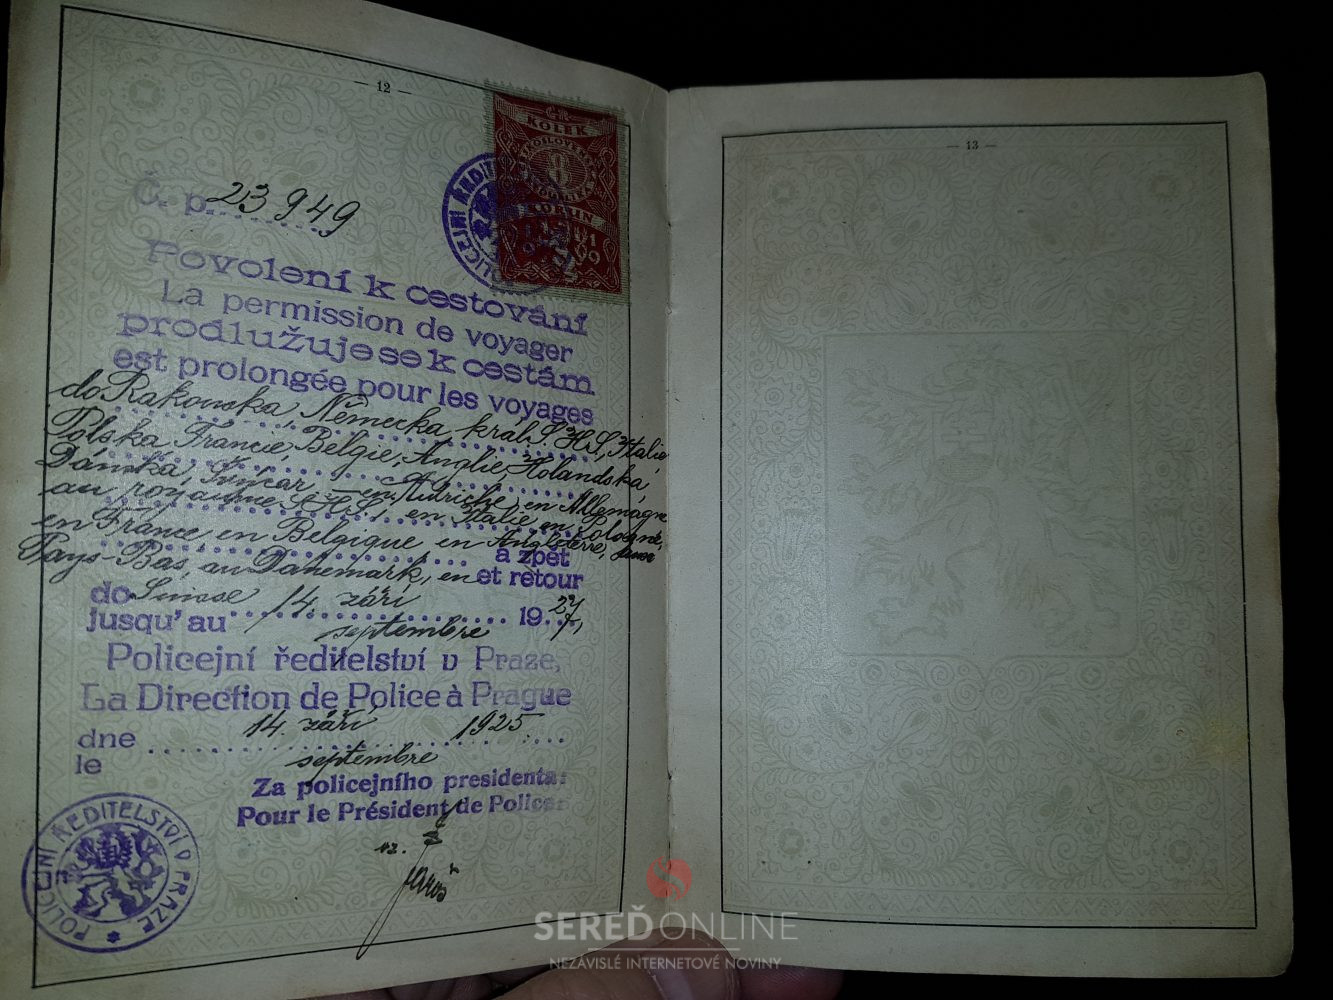 — 12 —
KOLEK
KORUN
1919
POLICEJNÍ ŘEDITEL
Č. p. 23949
Povolení k cestování
La permission de voyager
prodlužuje se k cestám
est prolongée pour les voyages
do Rakouska, Německa, král. S.H.S., Italie
Polska, Francie, Belgie, Anglie, Holandska,
Dánska, Švýcar – en Autriche, en Allemagne
au royaume S.H.S., en Italie, en Pologne,
en France, en Belgique, en Angleterre,
Pays-Bas, au Danemark, en
a zpět
et retour
do Suisse 14. září 1927,
jusqu'au septembre
Policejní ředitelství v Praze,
La Direction de Police à Prague
dne 14. září 1925.
le septembre
Za policejního presidenta:
Pour le Président de Police:
POLICEJNÍ ŘEDITELSTVÍ V PRAZE
— 13 —
SEREĎONLINE
NEZÁVISLÉ INTERNETOVÉ NOVINY